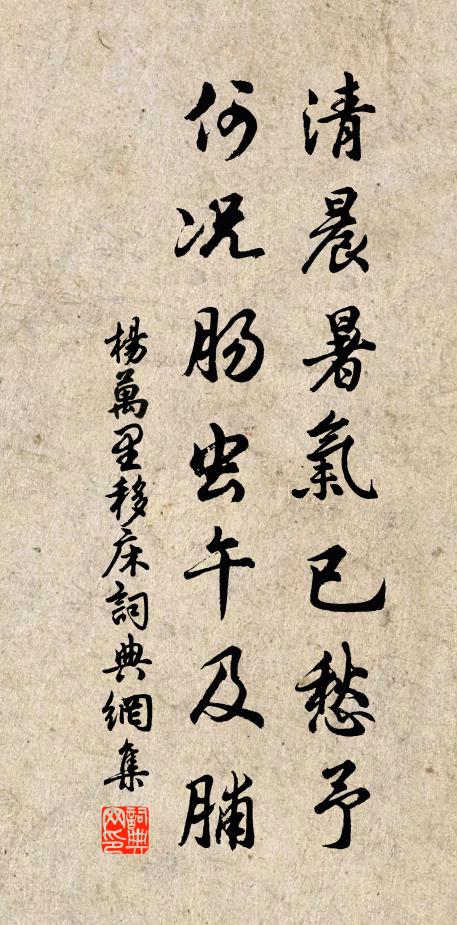 清晨暑氣已愁予
何况肠虫午及脯
楊萬里移床詞典網集
詞典网印